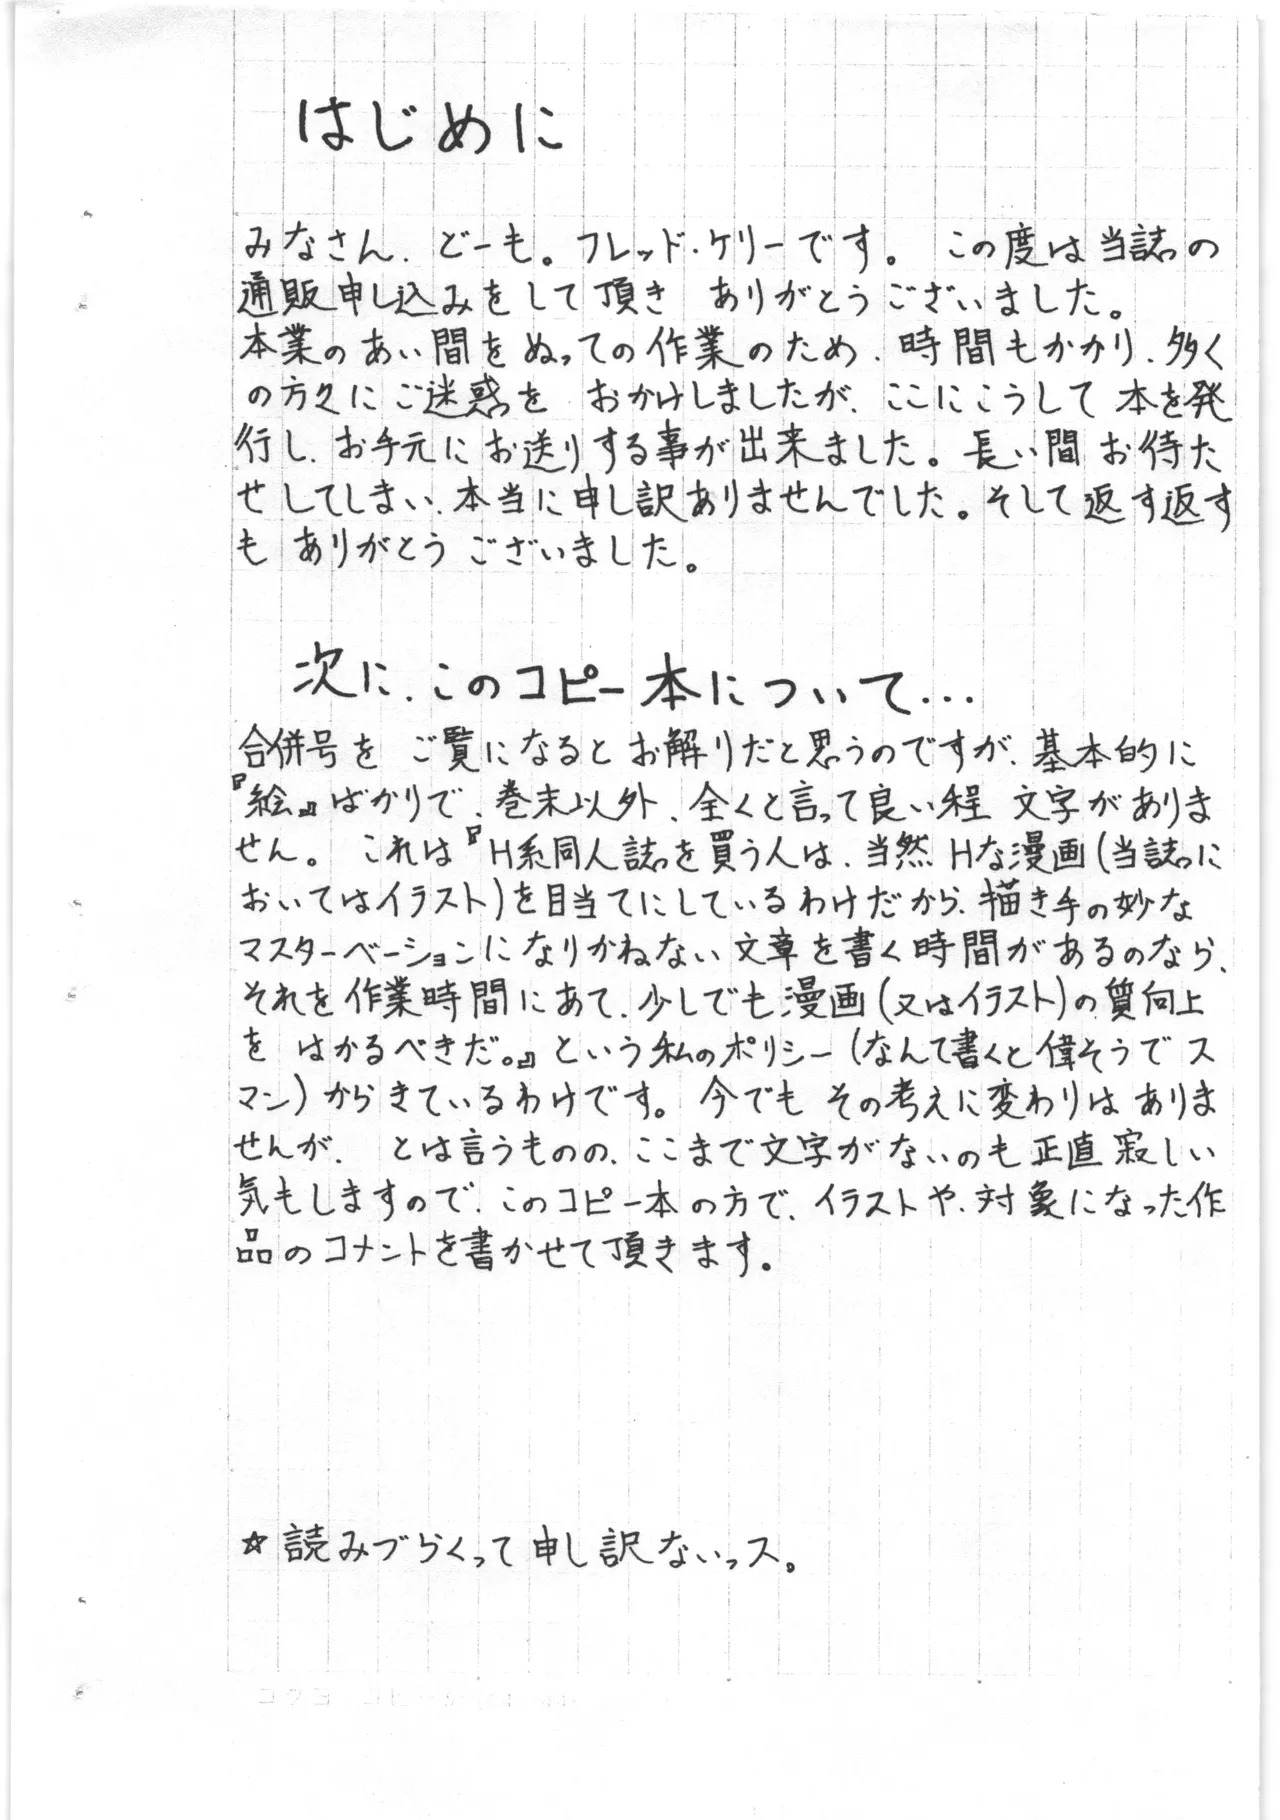 はじめに
みなさん、どーも。フレッド・ケリーです。 この度は当誌の
通販申し込みをして頂き ありがとうございました。
本業のあい間をぬっての作業のため、時間もかかり、多く
の方々にご迷惑を おかけしましたが、ここにこうして本を発
行し、お手元にお送りする事が出来ました。長い間お待た
せしてしまい、本当に申し訳ありませんでした。そして返す返す
も ありがとうございました。
次に、このコピー本について...
合併号を ご覧になるとお解りだと思うのですが、基本的に
『絵』ばかりで、巻末以外、全くと言って良い程 文字がありま
せん。 これは『H系同人誌を買う人は、当然Hな漫画(当誌に
おいてはイラスト)を目当てにしているわけだから、描き手の妙な
マスターベーションになりかねない文章を書く時間があるのなら、
それを作業時間にあて、少しでも漫画(又はイラスト)の質向上
を はかるべきだ。』という私のポリシー(なんて書くと偉そうでス
マン)からきているわけです。今でも その考えに変わりはありま
せんが、 とは言うものの、ここまで文字がないのも正直寂しい
気もしますので、このコピー本の方で、イラストや、対象になった作
品のコメントを書かせて頂きます。
☆読みづらくって申し訳ないっス。